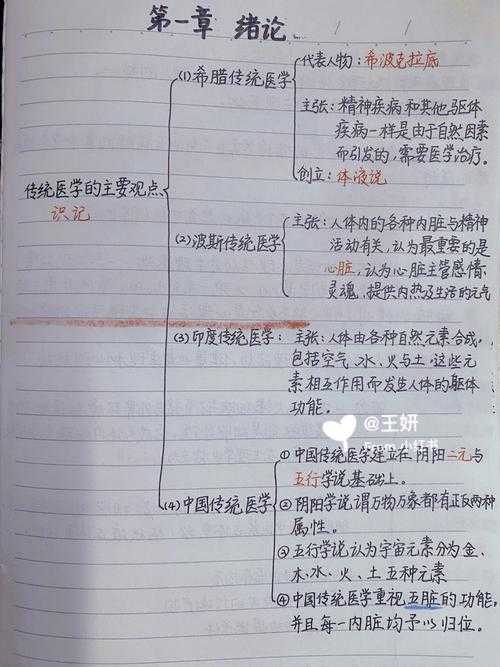 第一章 绪论
(1)希腊传统医学
代表人物:希波克拉底
主张:精神疾病和其他躯体
疾病一样是由于自然因素
而引发的,需要医学治疗。
创立:体液说
传统医学的主要观点
识记
(2)波斯传统医学
主张:人体内的各种内脏与精神
活动有关,认为最重要的是
心脏,认为心脏主管感情、
灵魂,提供内热及生活的元气
(3)印度传统医学:
主张:人体由各种自然元素合成,
包括空气、水、火与土,这些元
素相互作用而发生人体的躯体
功能。
@王妍
From 小红书
(4)中国传统医学
①中国传统医学建立在阴阳二元与
五行学说基础上。
②阴阳学说谓万物万象都有正反两种
属性。
③五行学说认为宇宙元素分为金、
木、水、火、土五种元素
④中国传统医学重视五脏的功能,
并且每一内脏均予以归位。